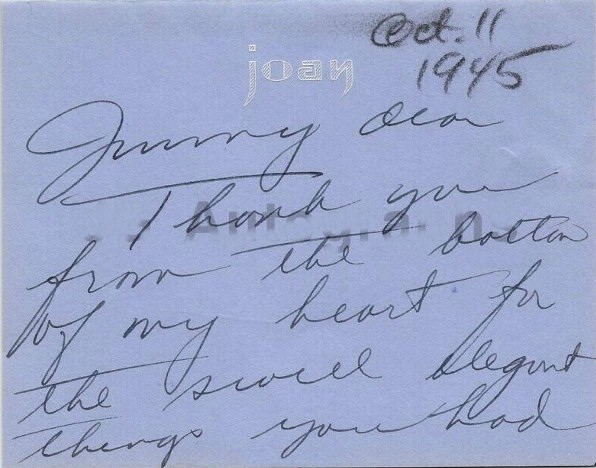 Oct. 11
1945
joan
Jimmy dear
Thank you
from the bottom
of my heart for
the swell elegant
things you had